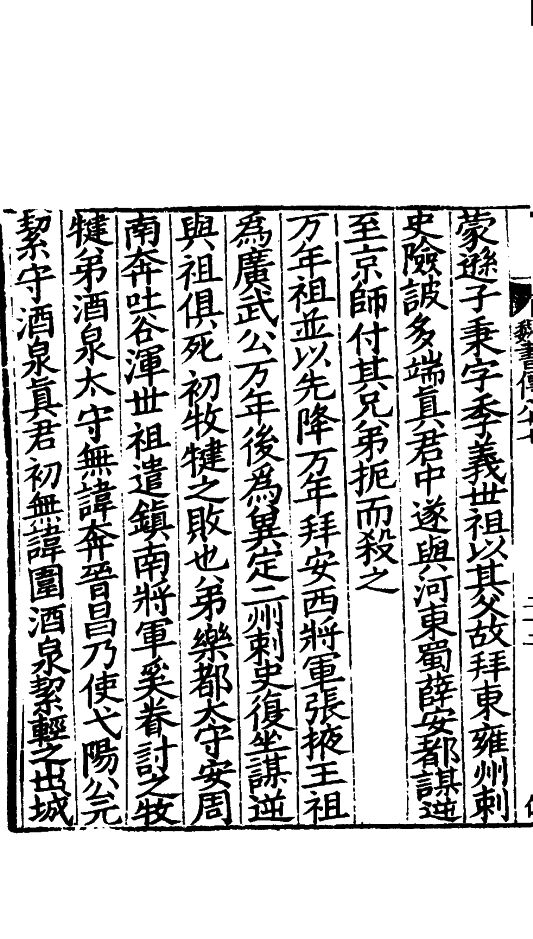 魏書傳八十七
蒙遜子秉字季義世祖以其父故拜東雍州刺
史險詖多端眞君中遂與河東蜀薛安都謀逆
至京師付其兄弟扼而殺之
万年祖並以先降万年拜安西將軍張掖王祖
為廣武公万年後為冀定二州刺史復坐謀逆
與祖俱死初牧犍之敗也弟樂都太守安周
南奔吐谷渾世祖遣鎮南將軍奚眷討之牧
犍弟酒泉太守無諱奔晉昌乃使弋陽公元
絜守酒泉眞君初無諱圍酒泉絜輕之出城